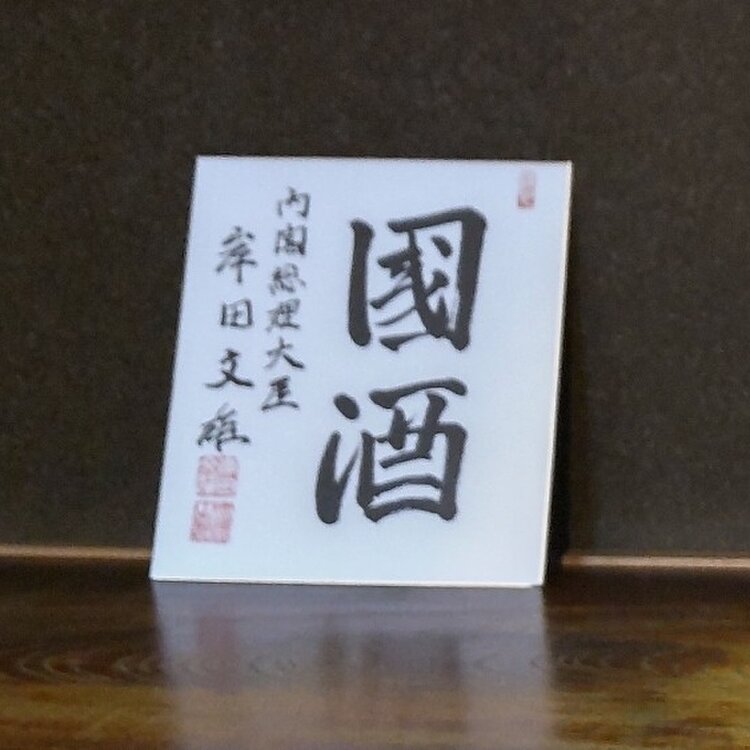 國酒
内閣総理大臣
岸田文雄